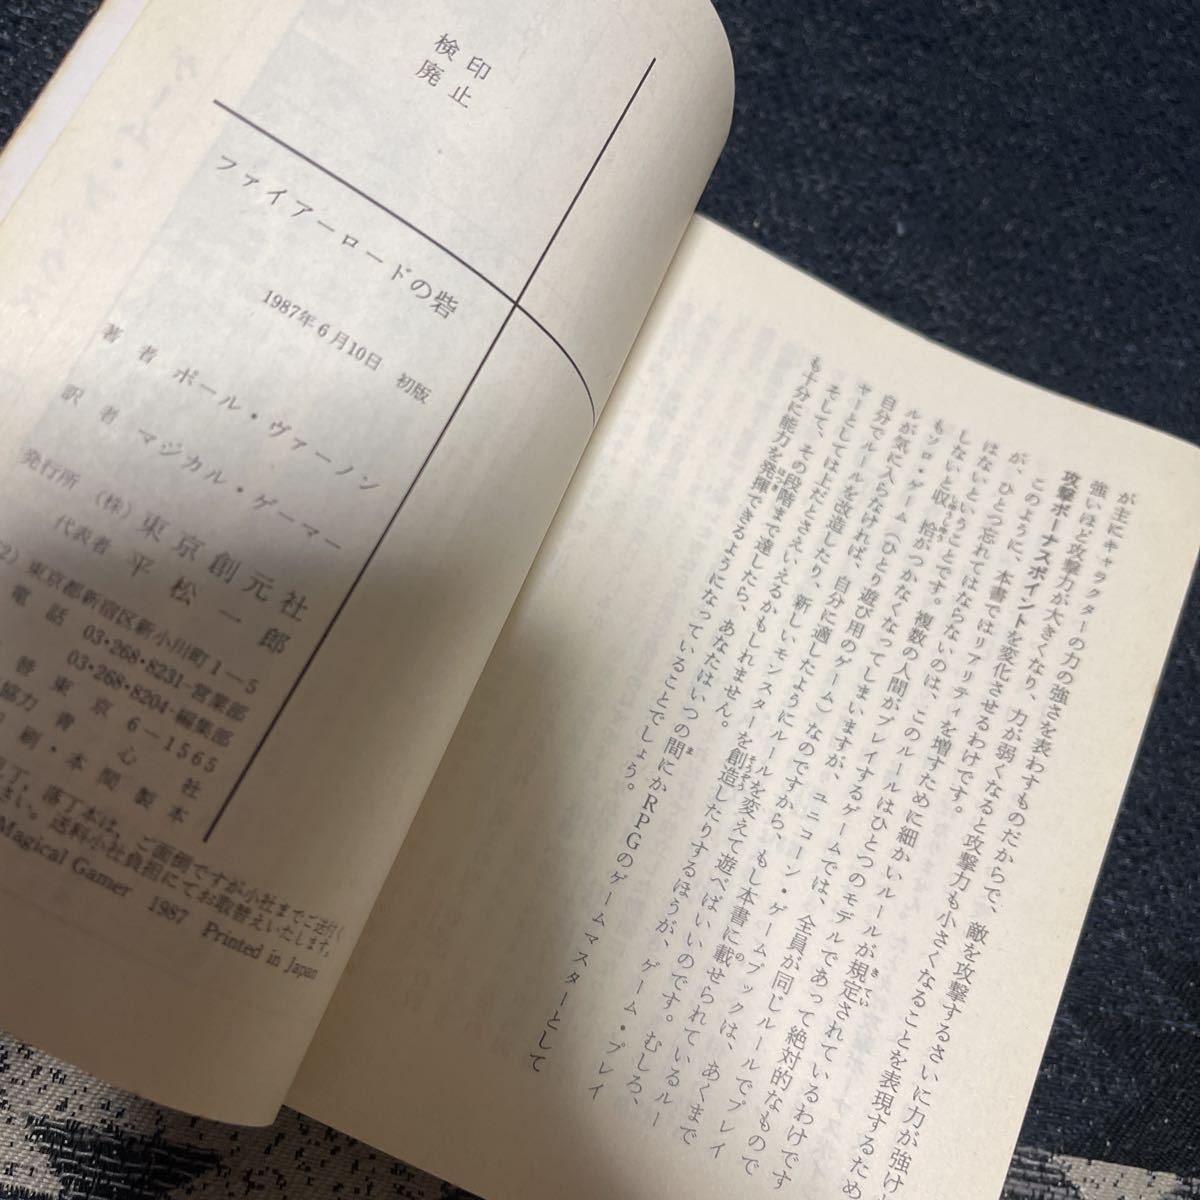 検印
廃止
ファイアーロードの砦
1987年6月10日 初版
著者 ポール・ヴァーノン
訳者 マジカル・ゲーマー
発行所 (株)東京創元社
代表者 平松一郎
2) 東京都新宿区新小川町1-5
電話 03・268・8231-営業部
03・268・8204-編集部
替東京6-1565
協力 青心社
刷・本間製本
丁、落丁本は、ご面倒ですが小社までご送付く
さい。送料小社負担にてお取替えいたします。
Magical Gamer 1987 Printed in Japan
が主にキャラクターの力の強さを表わすものだからで、敵を攻撃するさいに力が強け
強いほど攻撃力が大きくなり、力が弱くなると攻撃力も小さくなることを表現するため
攻撃ボーナスポイントを変化させるわけです。
このように、本書ではリアリティを増すために細かいルールが規定されているわけです
が、ひとつ忘れてはならないのは、このルールはひとつのモデルであって絶対的なもので
はないということです。複数の人間がプレイするゲームでは、全員が同じルールでプレイ
しないと収拾がつかなくなってしまいますが、ユニコーン・ゲームブックは、あくまで
もソロ・ゲーム(ひとり遊び用のゲーム)なのですから、もし本書に載せられているルー
ルが気に入らなければ、自分に適したようにルールを変えて遊べばいいのです。むしろ、
自分でルールを改造したり、新しいモンスターを創造したりするほうが、ゲーム・プレイ
ヤーとしては上だとさえいえるかもしれません。
そして、その段階まで達したら、あなたはいつの間にかRPGのゲームマスターとして
も十分に能力を発揮できるようになっていることでしょう。